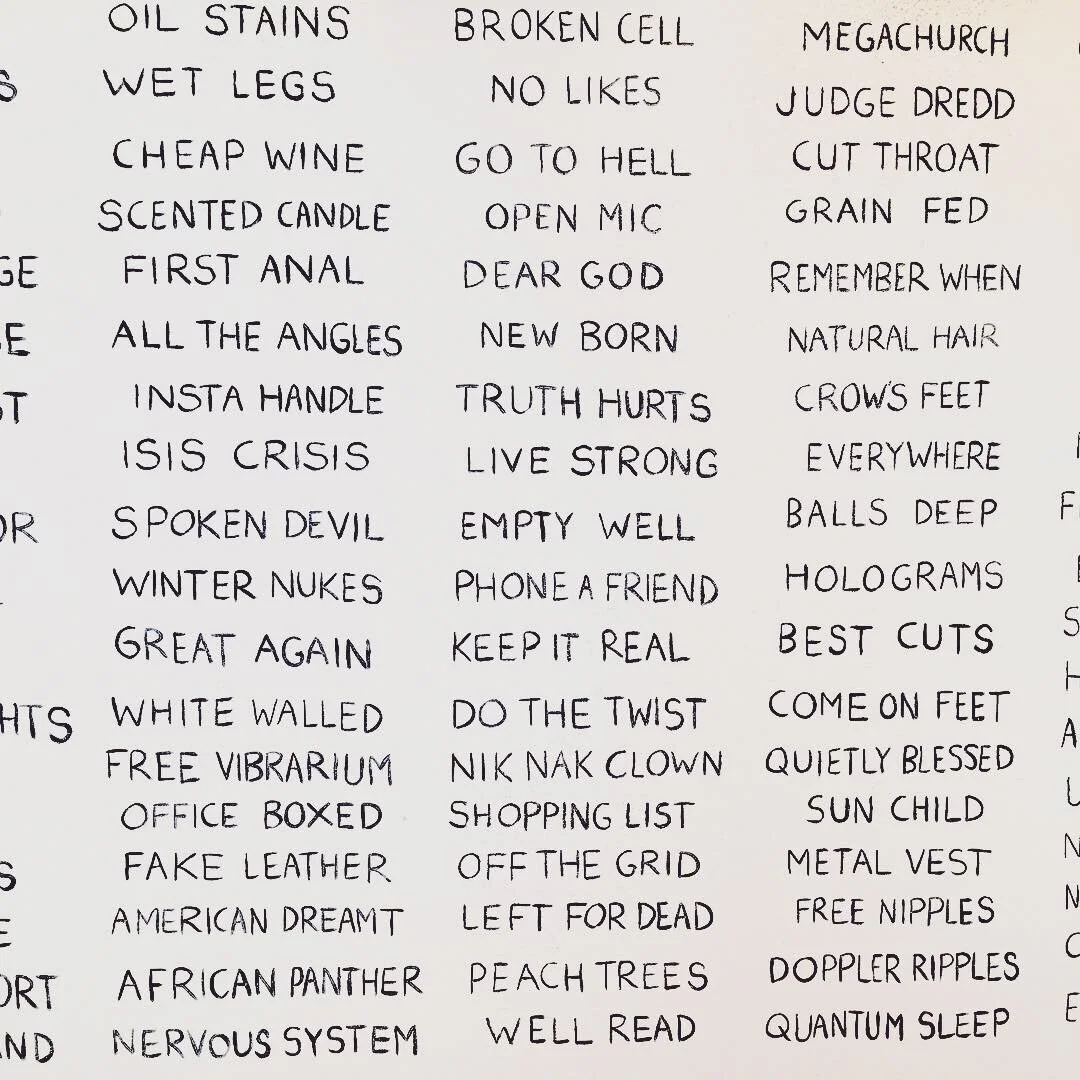 OIL STAINS
WET LEGS
CHEAP WINE
SCENTED CANDLE
FIRST ANAL
ALL THE ANGLES
INSTA HANDLE
ISIS CRISIS
SPOKEN DEVIL
WINTER NUKES
GREAT AGAIN
WHITE WALLED
FREE VIBRARIUM
OFFICE BOXED
FAKE LEATHER
AMERICAN DREAMT
AFRICAN PANTHER
NERVOUS SYSTEM
BROKEN CELL
NO LIKES
GO TO HELL
OPEN MIC
DEAR GOD
NEW BORN
TRUTH HURTS
LIVE STRONG
EMPTY WELL
PHONE A FRIEND
KEEP IT REAL
DO THE TWIST
NIK NAK CLOWN
SHOPPING LIST
OFF THE GRID
LEFT FOR DEAD
PEACH TREES
WELL READ
MEGACHURCH
JUDGE DREDD
CUT THROAT
GRAIN FED
REMEMBER WHEN
NATURAL HAIR
CROW'S FEET
EVERYWHERE
BALLS DEEP
HOLOGRAMS
BEST CUTS
COME ON FEET
QUIETLY BLESSED
SUN CHILD
METAL VEST
FREE NIPPLES
DOPPLER RIPPLES
QUANTUM SLEEP